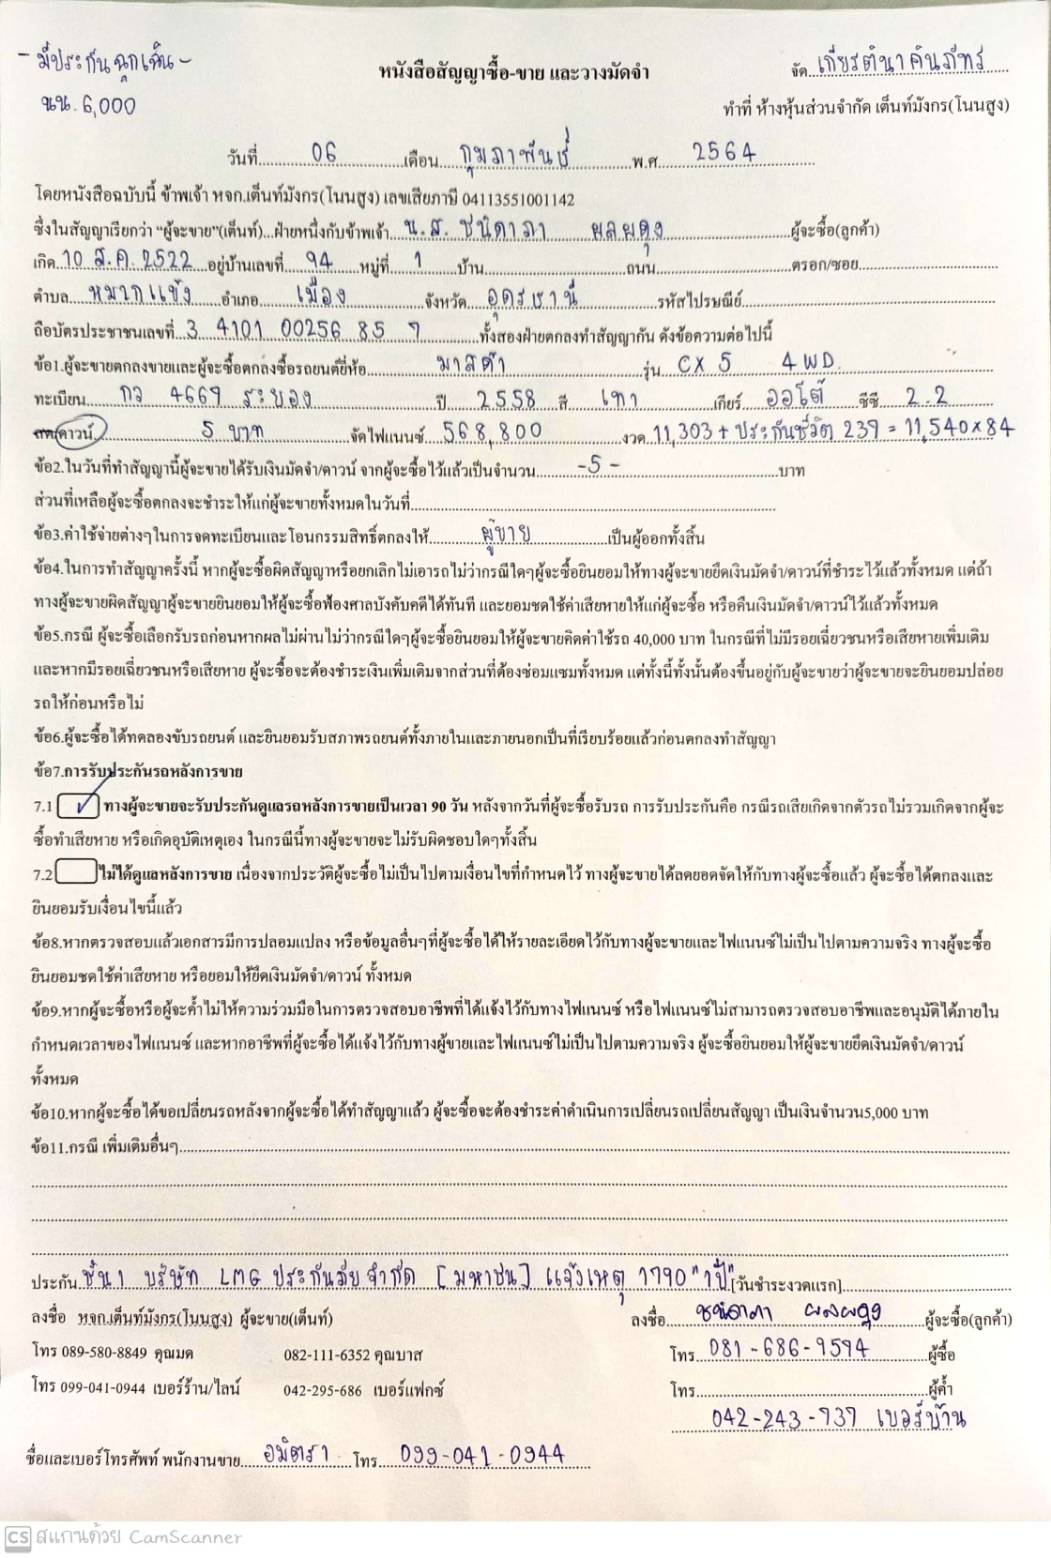 - มีประกันฉุกเฉิน -
นน. 6,000
หนังสือสัญญาซื้อ-ขาย และวางมัดจำ
จัด เกียรตินาคินภัทร
ทำที่ ห้างหุ้นส่วนจำกัด เต็นท์มังกร(โนนสูง)
วันที่ 06 เดือน กุมภาพันธ์ พ.ศ 2564
โดยหนังสือฉบับนี้ ข้าพเจ้า หจก.เต็นท์มังกร(โนนสูง) เลขเสียภาษี 04113551001142
ซึ่งในสัญญาเรียกว่า “ผู้จะขาย”(เต็นท์)...ฝ่ายหนึ่งกับข้าพเจ้า น.ส. ชนิดาภา ผลผดุง ผู้จะซื้อ(ลูกค้า)
เกิด 10 ส.ค. 2522 อยู่บ้านเลขที่ 94 หมู่ที่ 1 บ้าน ถนน ตรอก/ซอย
ตำบล หมากแข้ง อำเภอ เมือง จังหวัด อุดรธานี รหัสไปรษณีย์
ถือบัตรประชาชนเลขที่ 3 4101 00256 85 9 ทั้งสองฝ่ายตกลงทำสัญญากัน ดังข้อความต่อไปนี้
ข้อ1.ผู้จะขายตกลงขายและผู้จะซื้อตกลงซื้อรถยนต์ยี่ห้อ มาสด้า รุ่น CX 5 4WD.
ทะเบียน กว 4669 ระยอง ปี 2558 สี เทา เกียร์ ออโต้ ซีซี 2.2
สด/ดาวน์ 5 บาท จัดไฟแนนซ์ 568,800 งวด 11,303 + ประกันชีวิต 239 = 11,540 x 84
ข้อ2.ในวันที่ทำสัญญานี้ผู้จะขายได้รับเงินมัดจำ/ดาวน์ จากผู้จะซื้อไว้แล้วเป็นจำนวน -5- บาท
ส่วนที่เหลือผู้จะซื้อตกลงจะชำระให้แก่ผู้จะขายทั้งหมดในวันที่
ข้อ3.ค่าใช้จ่ายต่างๆในการจดทะเบียนและโอนกรรมสิทธิ์ตกลงให้ ผู้ขาย เป็นผู้ออกทั้งสิ้น
ข้อ4.ในการทำสัญญาครั้งนี้ หากผู้จะซื้อผิดสัญญาหรือยกเลิกไม่เอารถไม่ว่ากรณีใดๆผู้จะซื้อยินยอมให้ทางผู้จะขายยึดเงินมัดจำ/ดาวน์ที่ชำระไว้แล้วทั้งหมด แต่ถ้า
ทางผู้จะขายผิดสัญญาผู้จะขายยินยอมให้ผู้จะซื้อฟ้องศาลบังคับคดีได้ทันที และยอมชดใช้ค่าเสียหายให้แก่ผู้จะซื้อ หรือคืนเงินมัดจำ/ดาวน์ไว้แล้วทั้งหมด
ข้อ5.กรณี ผู้จะซื้อเลือกรับรถก่อนหากผลไม่ผ่านไม่ว่ากรณีใดๆผู้จะซื้อยินยอมให้ผู้จะขายคิดค่าใช้รถ 40,000 บาท ในกรณีที่ไม่มีรอยเฉี่ยวชนหรือเสียหายเพิ่มเติม
และหากมีรอยเฉี่ยวชนหรือเสียหาย ผู้จะซื้อจะต้องชำระเงินเพิ่มเติมจากส่วนที่ต้องซ่อมแซมทั้งหมด แต่ทั้งนี้ทั้งนั้นต้องขึ้นอยู่กับผู้จะขายว่าผู้จะขายจะยินยอมปล่อย
รถให้ก่อนหรือไม่
ข้อ6.ผู้จะซื้อได้ทดลองขับรถยนต์ และยินยอมรับสภาพรถยนต์ทั้งภายในและภายนอกเป็นที่เรียบร้อยแล้วก่อนตกลงทำสัญญา
ข้อ7.การรับประกันรถหลังการขาย
7.1 ✓ ทางผู้จะขายจะรับประกันดูแลรถหลังการขายเป็นเวลา 90 วัน หลังจากวันที่ผู้จะซื้อรับรถ การรับประกันคือ กรณีรถเสียเกิดจากตัวรถไม่รวมเกิดจากผู้จะ
ซื้อทำเสียหาย หรือเกิดอุบัติเหตุเอง ในกรณีนี้ทางผู้จะขายจะไม่รับผิดชอบใดๆทั้งสิ้น
7.2 ไม่ได้ดูแลหลังการขาย เนื่องจากประวัติผู้จะซื้อไม่เป็นไปตามเงื่อนไขที่กำหนดไว้ ทางผู้จะขายได้ลดยอดจัดให้กับทางผู้จะซื้อแล้ว ผู้จะซื้อได้ตกลงและ
ยินยอมรับเงื่อนไขนี้แล้ว
ข้อ8.หากตรวจสอบแล้วเอกสารมีการปลอมแปลง หรือข้อมูลอื่นๆที่ผู้จะซื้อได้ให้รายละเอียดไว้กับทางผู้จะขายและไฟแนนซ์ไม่เป็นไปตามความจริง ทางผู้จะซื้อ
ยินยอมชดใช้ค่าเสียหาย หรือยอมให้ยึดเงินมัดจำ/ดาวน์ ทั้งหมด
ข้อ9.หากผู้จะซื้อหรือผู้จะค้ำไม่ให้ความร่วมมือในการตรวจสอบอาชีพที่ได้แจ้งไว้กับทางไฟแนนซ์ หรือไฟแนนซ์ไม่สามารถตรวจสอบอาชีพและอนุมัติได้ภายใน
กำหนดเวลาของไฟแนนซ์ และหากอาชีพที่ผู้จะซื้อได้แจ้งไว้กับทางผู้ขายและไฟแนนซ์ไม่เป็นไปตามความจริง ผู้จะซื้อยินยอมให้ผู้จะขายยึดเงินมัดจำ/ดาวน์
ทั้งหมด
ข้อ10.หากผู้จะซื้อได้ขอเปลี่ยนรถหลังจากผู้จะซื้อได้ทำสัญญาแล้ว ผู้จะซื้อจะต้องชำระค่าดำเนินการเปลี่ยนรถเปลี่ยนสัญญา เป็นเงินจำนวน5,000 บาท
ข้อ11.กรณี เพิ่มเติมอื่นๆ
ประกัน ชั้น 1 บริษัท LMG ประกันภัย จำกัด [มหาชน] แจ้งเหตุ 1790 "1ปี" [วันชำระงวดแรก]
ลงชื่อ หจก.เต็นท์มังกร(โนนสูง) ผู้จะขาย(เต็นท์) ลงชื่อ ชนิดาภา ผลผดุง ผู้จะซื้อ(ลูกค้า)
โทร 089-580-8849 คุณมด 082-111-6352 คุณบาส โทร 081-686-9594 ผู้ซื้อ
โทร 099-041-0944 เบอร์ร้าน/ไลน์ 042-295-686 เบอร์แฟกซ์ โทร ผู้ค้ำ
042-243-939 เบอร์บ้าน
ชื่อและเบอร์โทรศัพท์ พนักงานขาย อมิตรา โทร 099-041-0944
CS สแกนด้วย CamScanner